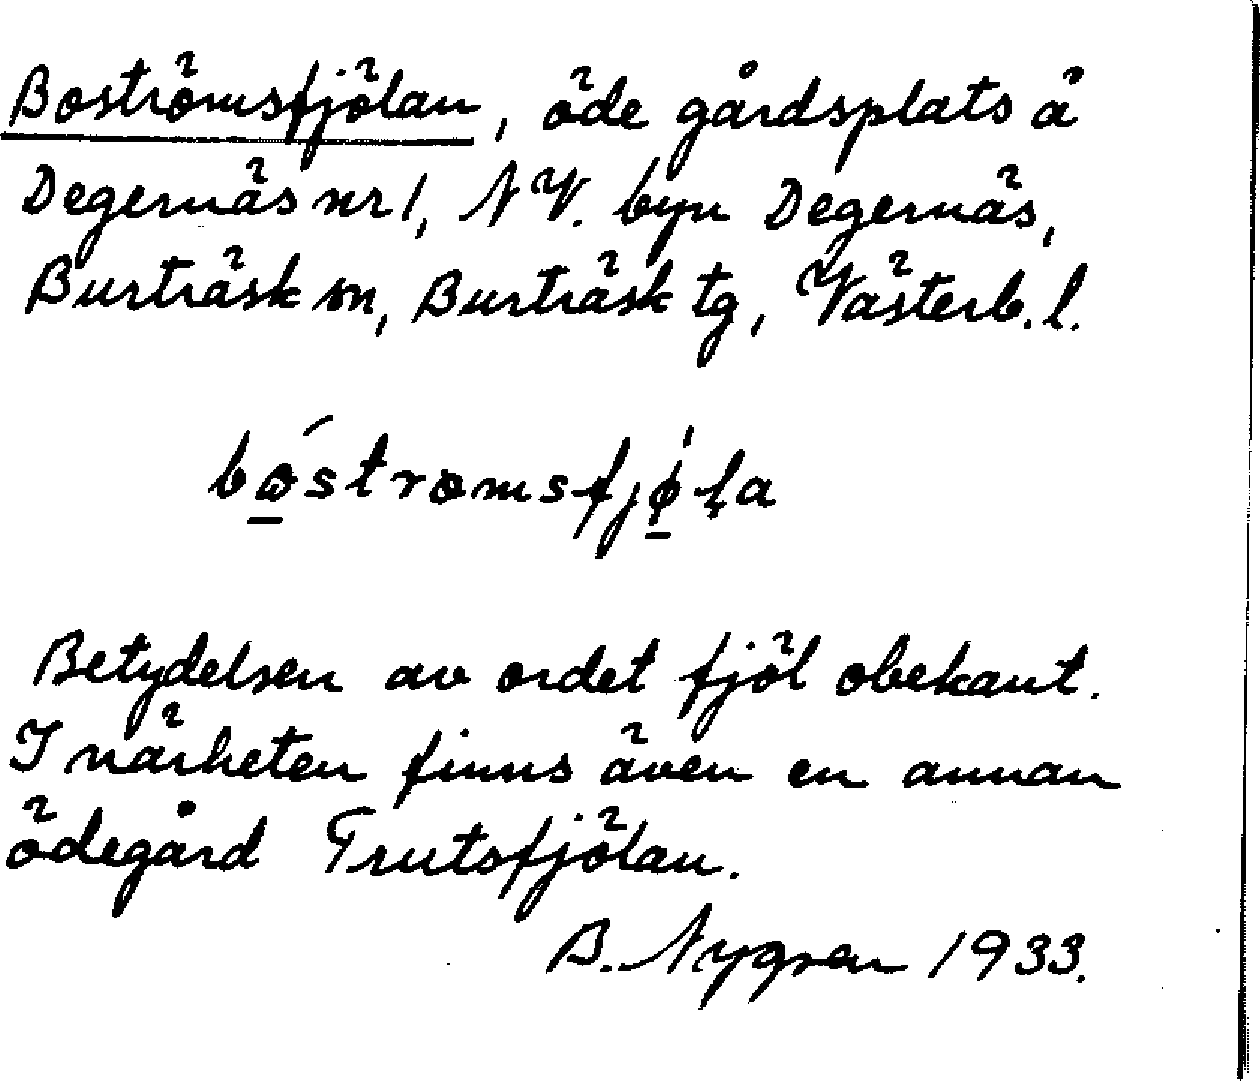 Boströmsfjölan, öde gårdsplats å
Degernäs nr 1, NV. byn Degernäs,
Burträsk sn, Burträsk tg, Västerb. l.
bɷ̲́strömsfjø̲̍ḷa
Betydelsen av ordet fjöl obekant.
I närheten finns även en annan
ödegård Trutsfjölan.
B. Nygren 1933.